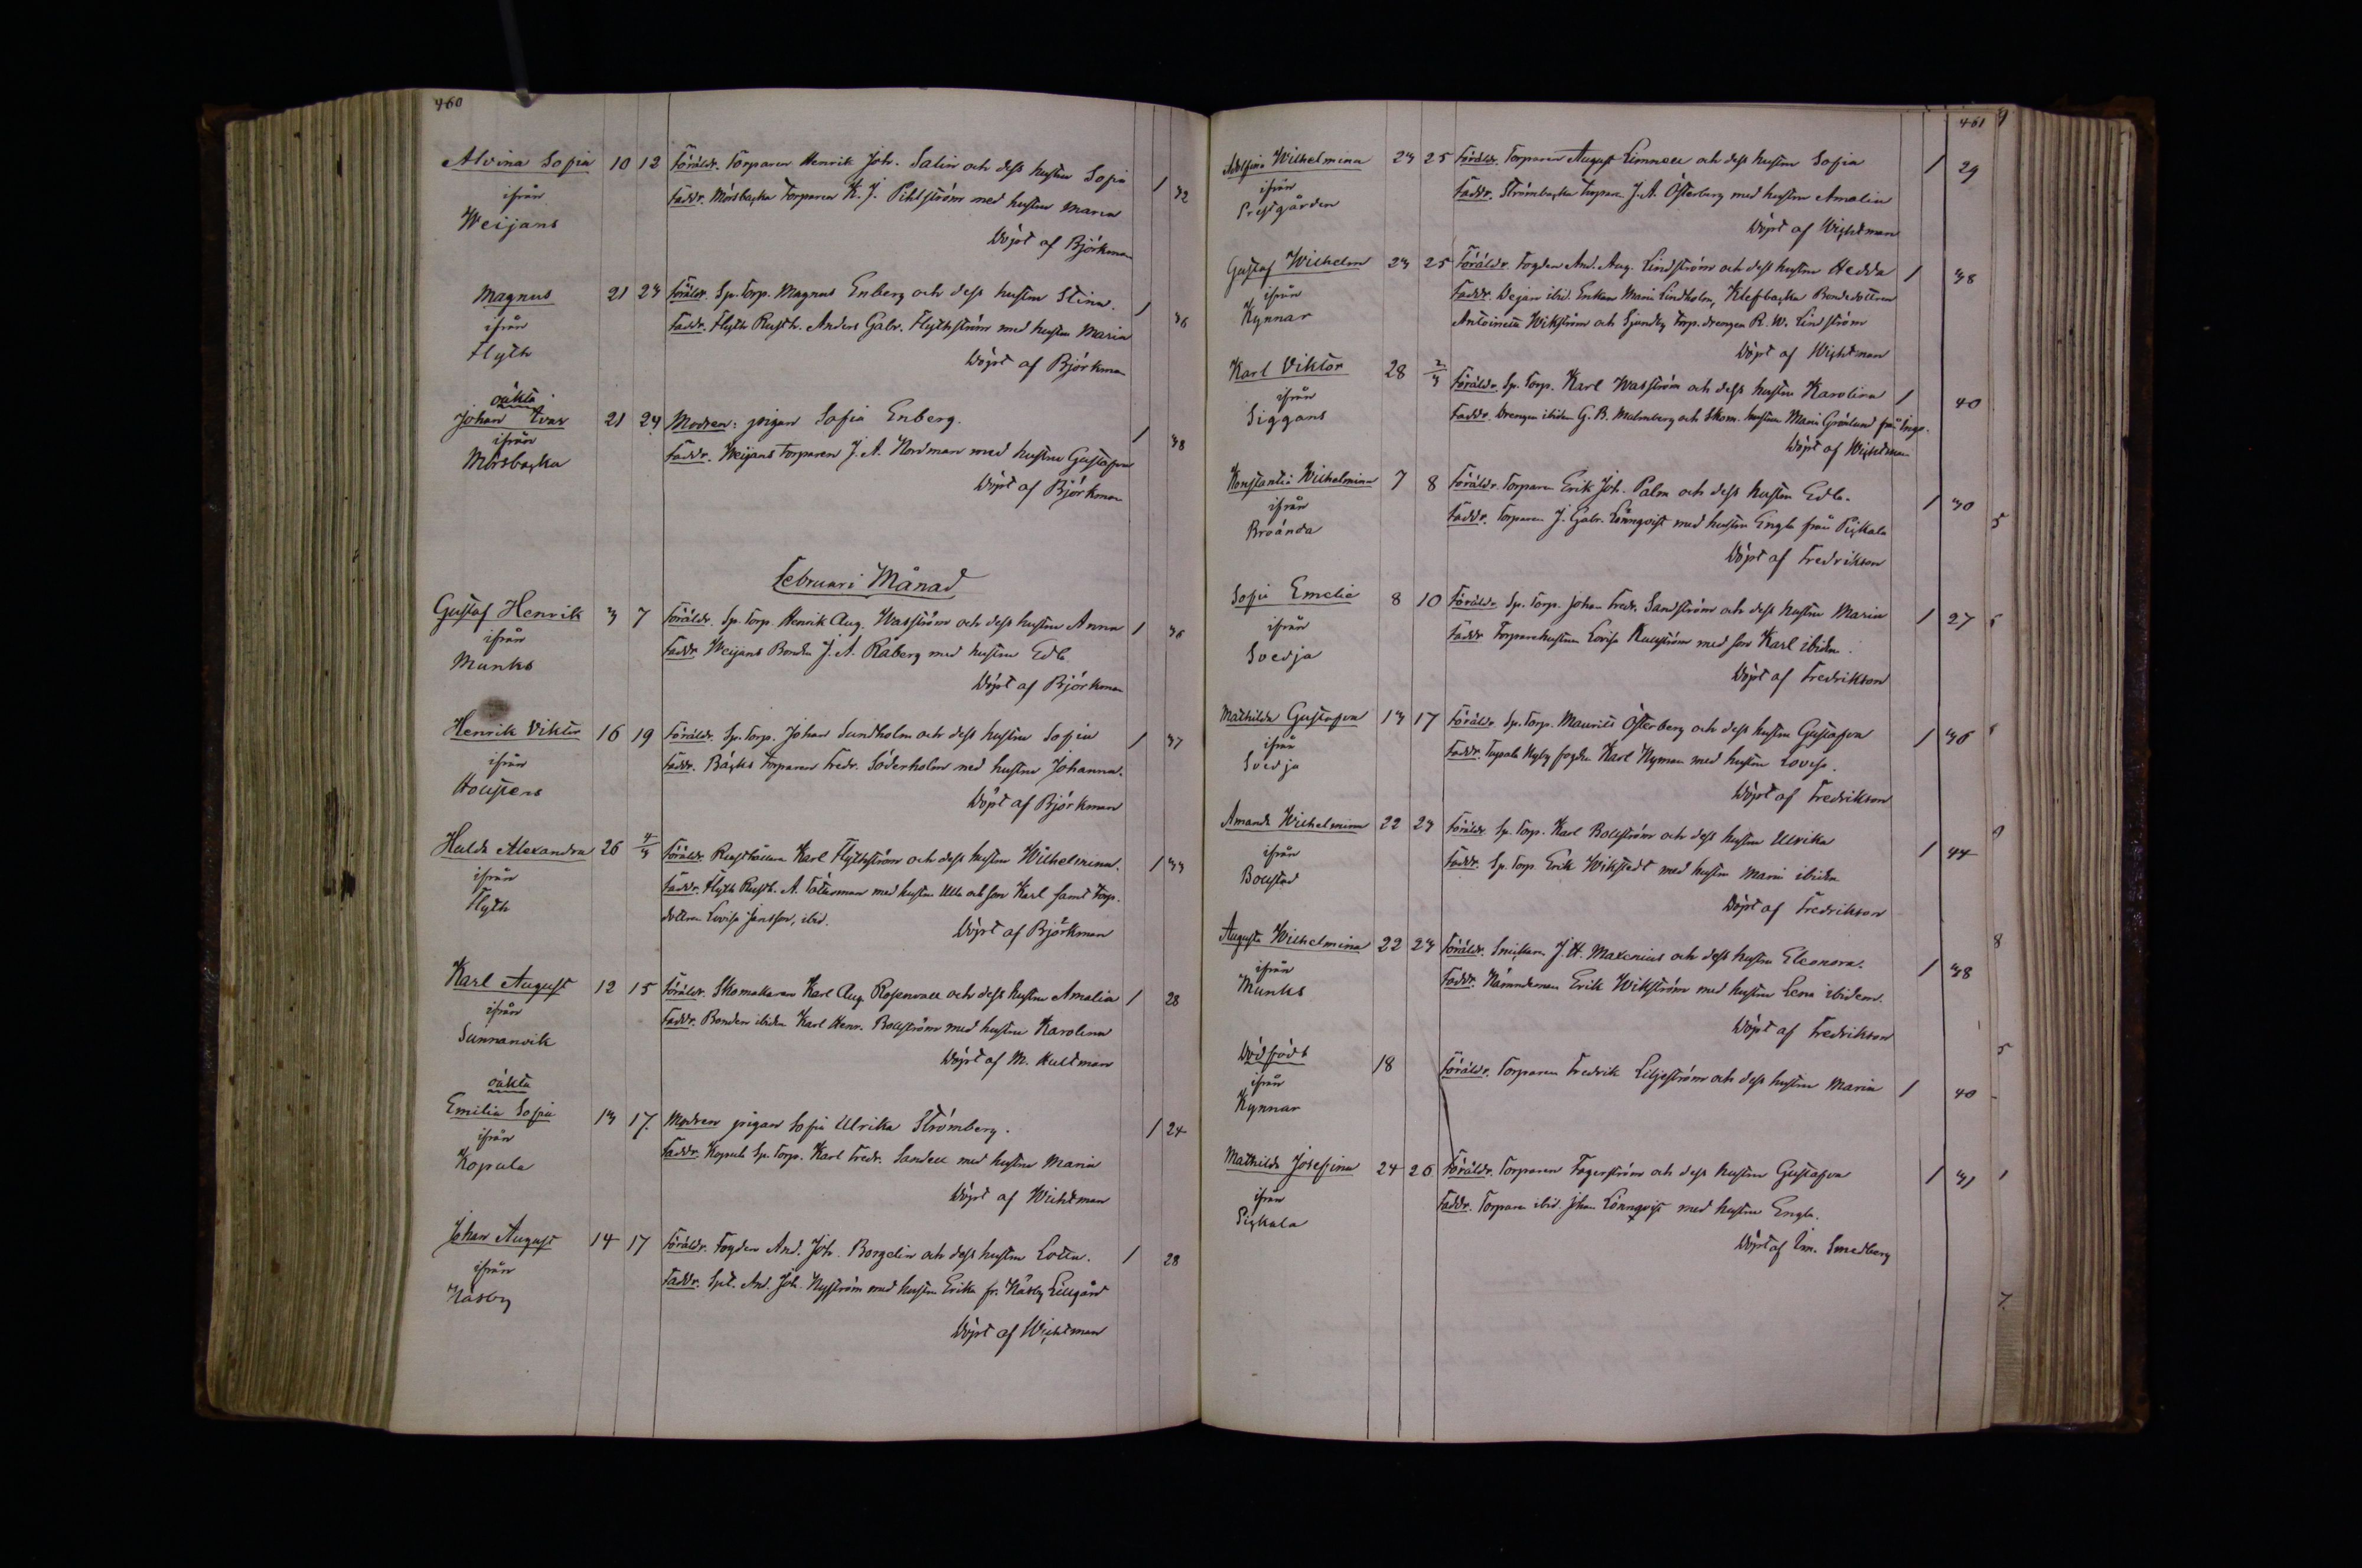 460
Alvina Sofia 10 12 Föräldr. Torparen Henrik Joh. Salin och dess hustru Sofia 1 32
ifrån Faddr. Mörsbacka Torparen K. J. Pihlström med hustru Maria
Weijans Döpt af Björkman
Magnus 21 23 Föräldr. Sp. Torp. Magnus Enberg och dess hustru Stina. 1 36
ifrån Faddr. Flyth Rusth. Anders Gabr. Flythström med hustru Maria
Flyth Döpt af Björkman
oäkta
Johan Ivar 21 24 Modren: pigan Sofia Enberg. 1 38
ifrån Faddr. Weijans Torparen J. A. Nordman med hustru Gustafva
Mörsbacka Döpt af Björkman
Februari Månad
Gustaf Henrik 3 7 Föräldr. Sp. Torp. Henrik Aug. Wasström och dess hustru Anna 1 36
ifrån Faddr. Weijans Bonden J. A. Råberg med hustru Edla
Munks Döpt af Björkman
Henrik Viktor 16 19 Föräldr. Sp. Torp. Johan Sundholm och dess hustru Sofia 1 37
ifrån Faddr. Bäcks Torparen Fredr. Söderholm med hustru Johanna.
Döpt af Björkman
Hulda Alexandra 26 4/3 Föräldr. Rusthållaren Karl Flythström och dess hustru Wilhelmina. 1 33
ifrån Faddr. Flyth Rusth. A. med hustru Ulla och son Karl samt Torp.
Flyth dottren Lovisa Jansson, ibid. Döpt af Björkman
Karl August 12 15 Föräldr. Skomakaren Karl Aug. Rosenvall och dess hustru Amalia 1 28
ifrån Faddr. Bonden ibidem Karl Henr. Bollström med hustru Karolina
Sunnanvik Döpt af M. Hultman
oäkta
Emilia Sofia 13 17. Modren pigan Sofia Ulrika Strömberg. 1 24
ifrån Faddr. Kopula Sp. Torp. Karl Fredr. Sandell med hustru Maria
Kopula Döpt af Wichtman
Johan August 14 17 Föräldr. Fogden And. Joh. Borgelin och dess hustru Lotta. 1 28
ifrån Faddr. And. Joh. Nyström med hustru Erika fr. Näsby Lillgård
Näsby Döpt af Wichtman
461
Adolfina Wilhelmina 23 25 Föräldr. Torparen August Limnell och dess hustru Sofia 1 29
ifrån Faddr. Strömbacka Torpare J. A. Österberg med hustru Amalia
Prestgården Döpt af Wichtman
Gustaf Wilhelm 23 25 Föräldr. Fogden And. Aug. Lindström och dess hustru Hedda 1 38
ifrån Faddr. Dejan ibid. Enkan Maria Lindholm, Klefbacka Bondedottren
Kynnar Antoinetta Wikström och Sjundby Torp. drengen R. W. Lindström
Döpt af Wichtman
Karl Viktor 28 2/3 Föräldr. Sp. Torp. Karl Wasström och dess hustru Karolina 1 40
ifrån Faddr. Drengen ibidem G. B. Malmberg och Skom. hustrun Maria Grönlund från Ingo.
Siggans Döpt af Wichtman
Konstantia Wilhelmina 7 8 Föräldr. Torparen Erik Joh. Palm och dess hustru Edla. 1 30
ifrån Faddr. Torparen J. Gabr. Lönnqvist med hustru Engla från Pickala
Broända Döpt af Fredrikson
Sofia Emelie 8 10 Föräldr. Sp. Torp. Johan Fredr. Sandström och dess hustru Maria 1 27
ifrån Faddr. Torparehustrun Lovisa med son Karl ibidem.
Svedja Döpt af Fredrikson
Mathilda Gustafva 13 17 Föräldr. Sp. Torp. Maurits Österberg och dess hustru Gustafva 1 36
ifrån Faddr. Nyby fogden Karl Nyman med hustru Lovisa.
Svedja Döpt af Fredrikson
Amanda Wilhelmina 22 23 Föräldr. Sp. Torp. Karl Bollström och dess hustru Ulrika 1 44
ifrån Faddr. Sp. Torp. Erik Wikstedt med hustru Maria ibidem
Bollstad Döpt af Fredrikson
Augusta Wilhelmina 22 23 Föräldr. Snickaren J. H. Maxenius och dess hustru Eleonora. 1 38
ifrån Faddr. Nämndeman Erik Wikström med hustru Lena ibidem.
Munks Döpt af Fredrikson
Dödfödt 18 Föräldr. Torparen Fredrik Liljeström och dess hustru Maria 1 40
ifrån
Kynnar
Mathilda Josefina 24 26 Föräldr. Torparen Fagerström och dess hustru Gustafva 1 31
ifrån Faddr. Torparen ibid. Johan Lönnqvist med hustru Engla.
Pickala Döpt af Em. Smedberg